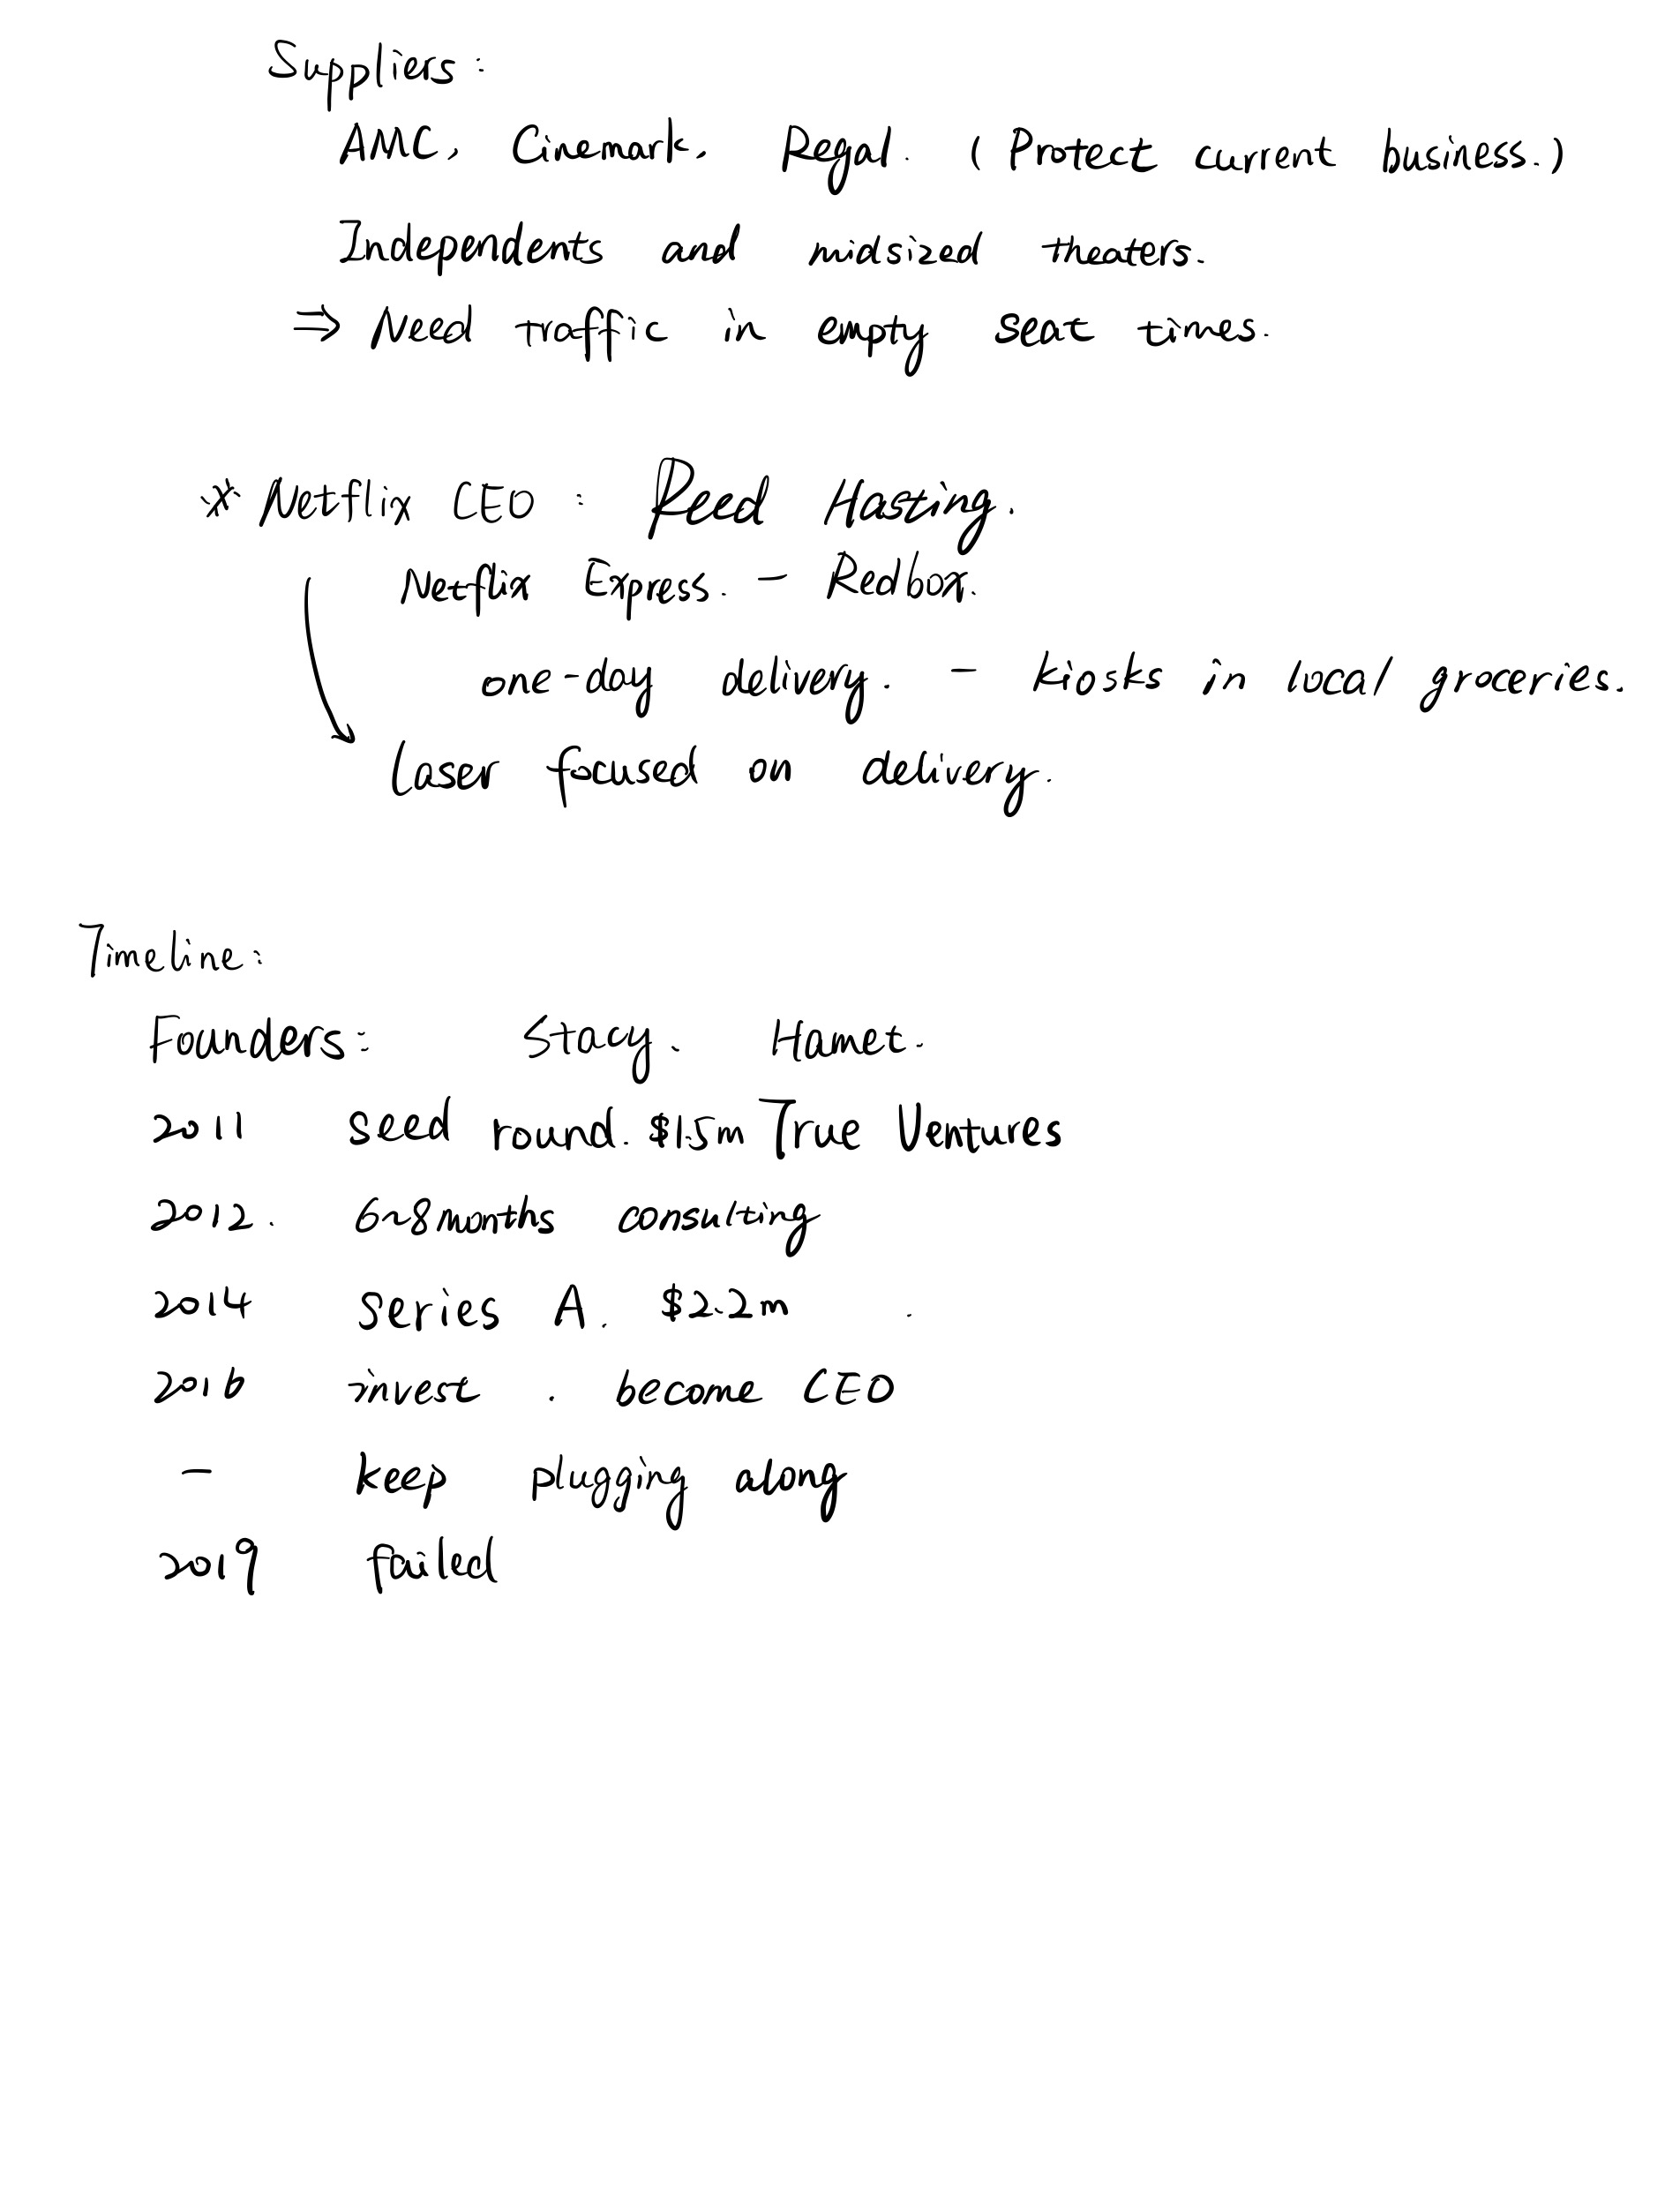 Suppliers:
AMC, Cinemark, Regal. (Protect current business.)
Independents and midsized theaters.
⇒ Need traffic in empty seat times.
※ Netflix CEO : Reed Hasting.
Netflix Express. - Redbox.
one-day delivery. - kiosks in local groceries.
Laser focused on delivery.
Timeline:
Founders: Stacy. Hamet.
2011 seed round. $1.5m True Ventures
2012. 6~8months consulting
2014 series A. $2.2m
2016 invest. become CEO
- keep plugging along
2019 failed